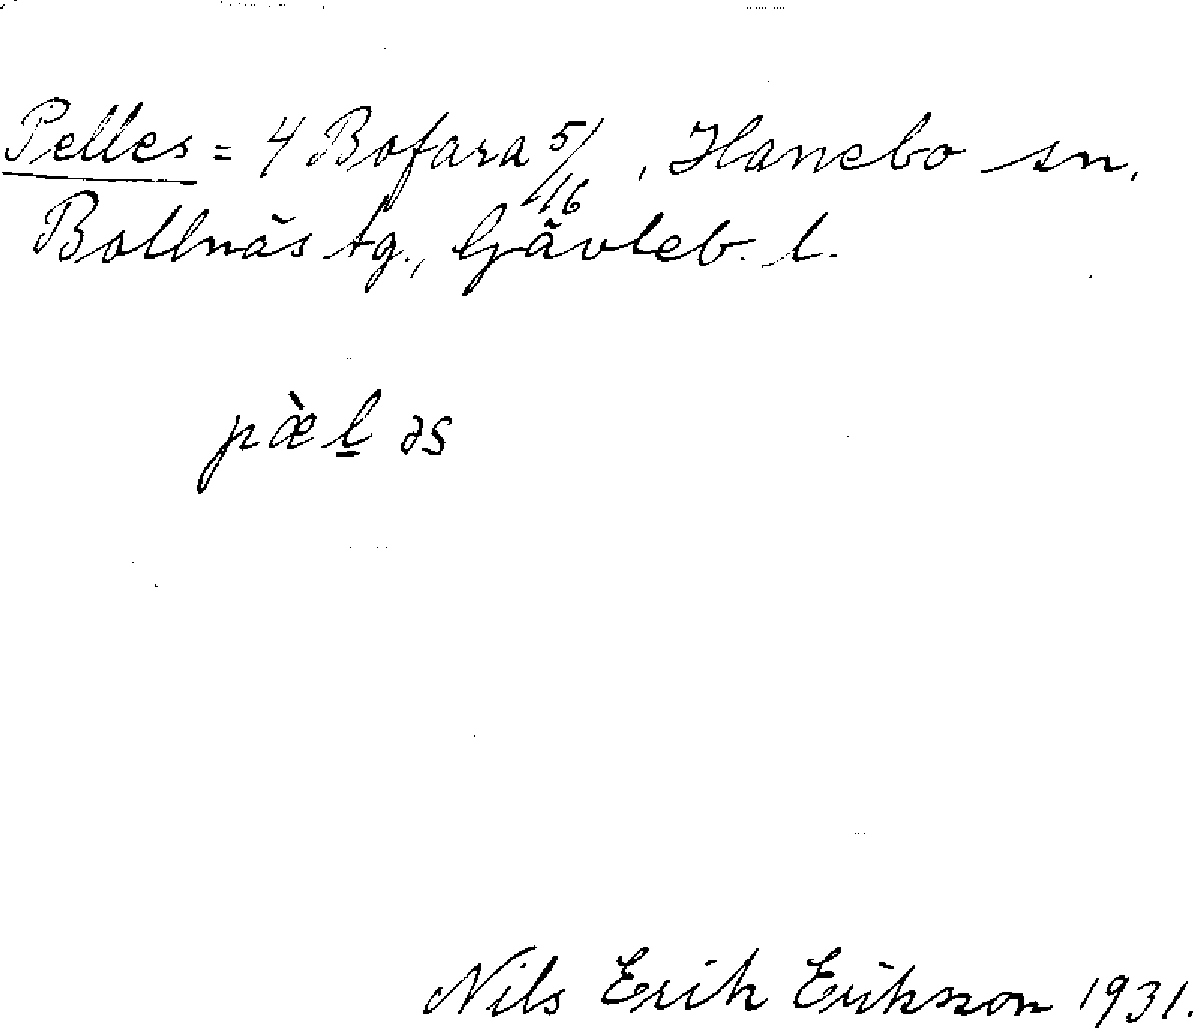 Pelles = 4 Bofara 5/16, Hanebo sn.
Bollnäs tg., Gävleb. l.
pæ̀l̲əs
Nils Erik Eriksson 1931.